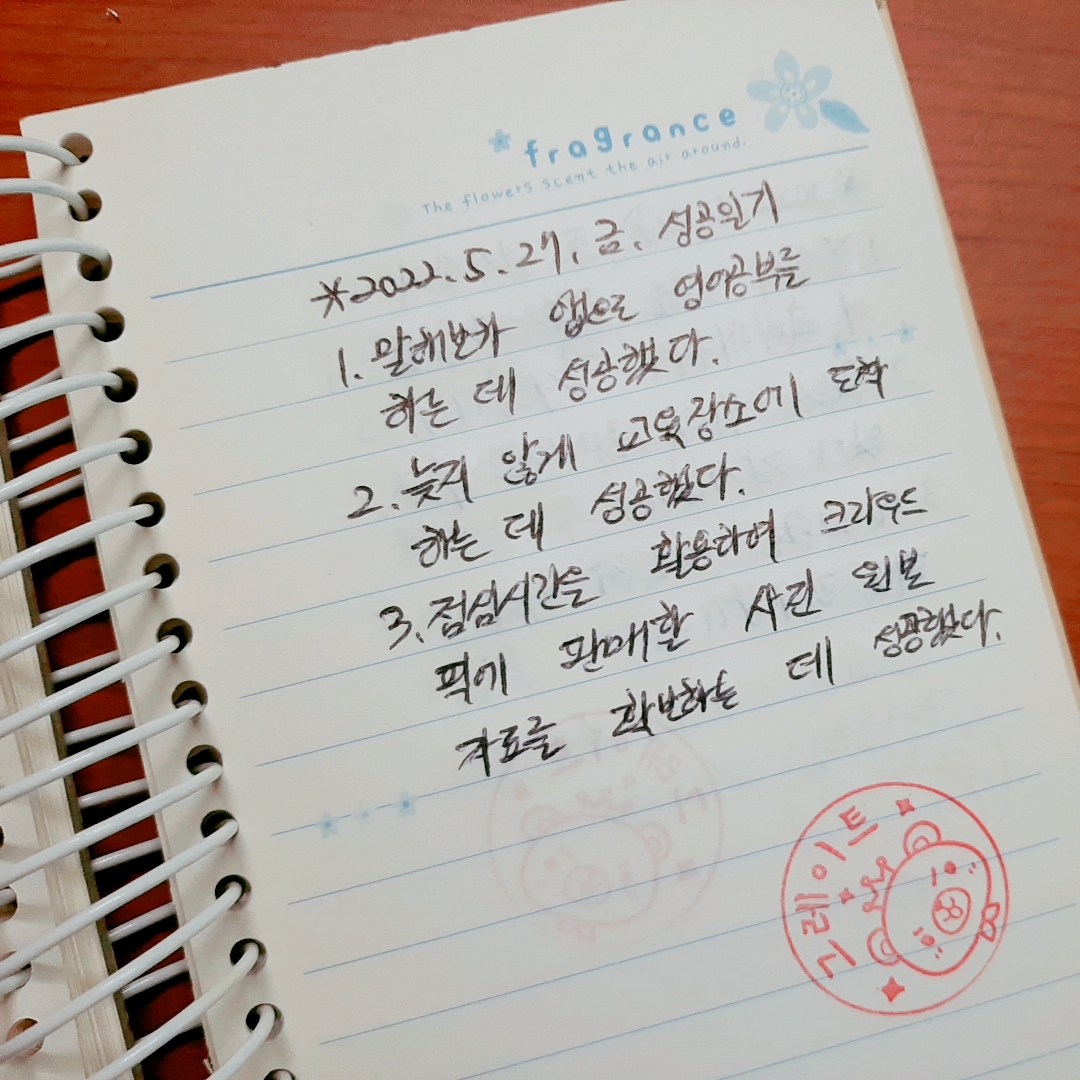 fragrance
The flowers scent the air around.
*2022.5.27.금. 성공일기
1. 말해보카 앱으로 영어공부를
하는 데 성공했다.
2. 늦지 않게 교육장소에 도착
하는 데 성공했다.
3. 점심시간을 활용하여 크라우드
픽에 판매할 사진 원본
자료를 확보하는 데 성공했다.
그레이트